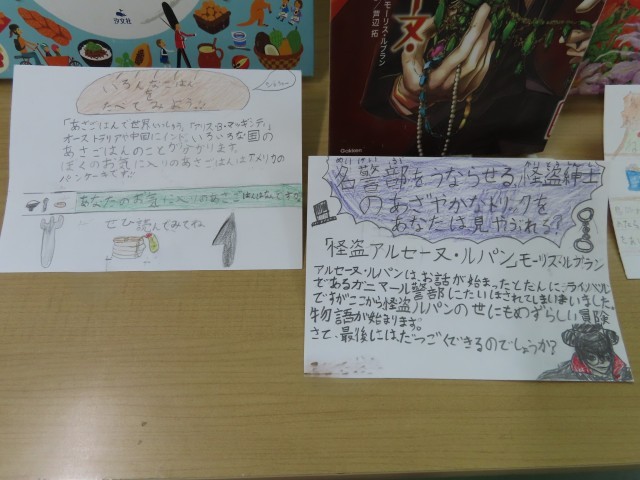 汐文社
モーリス・ルブラン
Gakken
いろんなごはん
を
たべてみよう!!
「あさごはんで世界いっしゅう」
オーストラリアや中国にインド、いろいろな国の
あさごはんのことが分かります。
ぼくのお気に入りのあさごはんはアメリカの
パンケーキです。
あなたのお気に入りのあさごはんはなんですか
ぜひ読んでみてね
めいけいぶ
名警部をうならせる怪盗紳士
のあざやかなトリックを
あなたは見やぶれる?
「怪盗アルセーヌ・ルパン」モーリス・ルブラン
アルセーヌ・ルパンは、お話が始まったとたんに、ライバル
であるガニマール警部にたいほされてしまいました。
ですがここから怪盗ルパンのせにもめずらしい冒険
物語が始まります。
さて、最後にはだつごくできるのでしょうか?